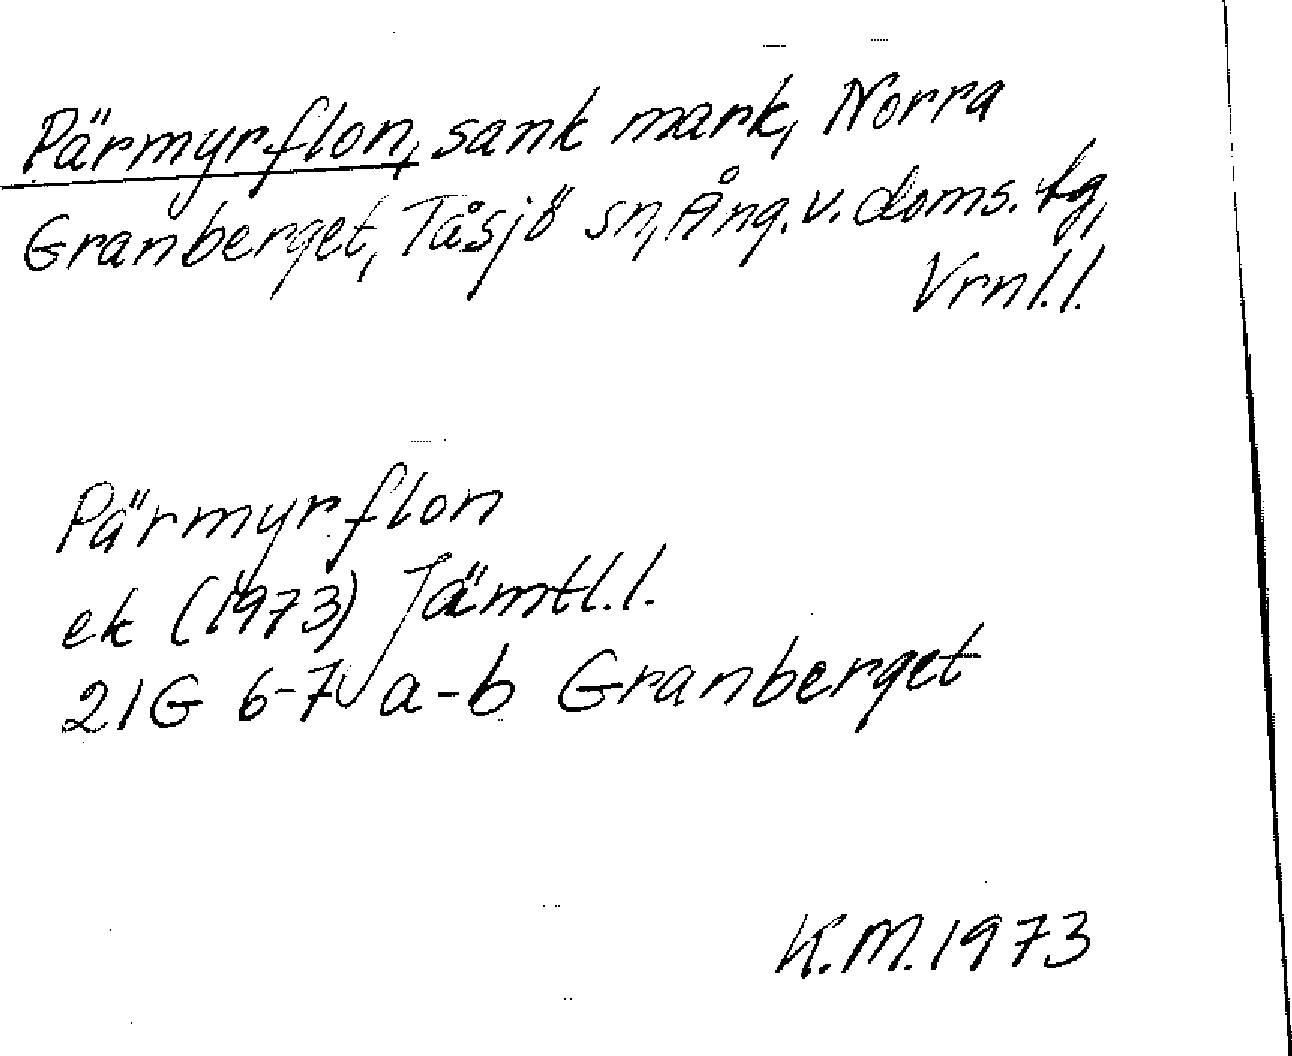 Pärmyrflon, sank mark, Norra
Granberget, Tåsjö sn, Ång. v. doms. tg,
Vrnl.l.
Pärmyrflon
ek (1973) Jämtl.l.
21G 6-7 a-b Granberget
K.M. 1973